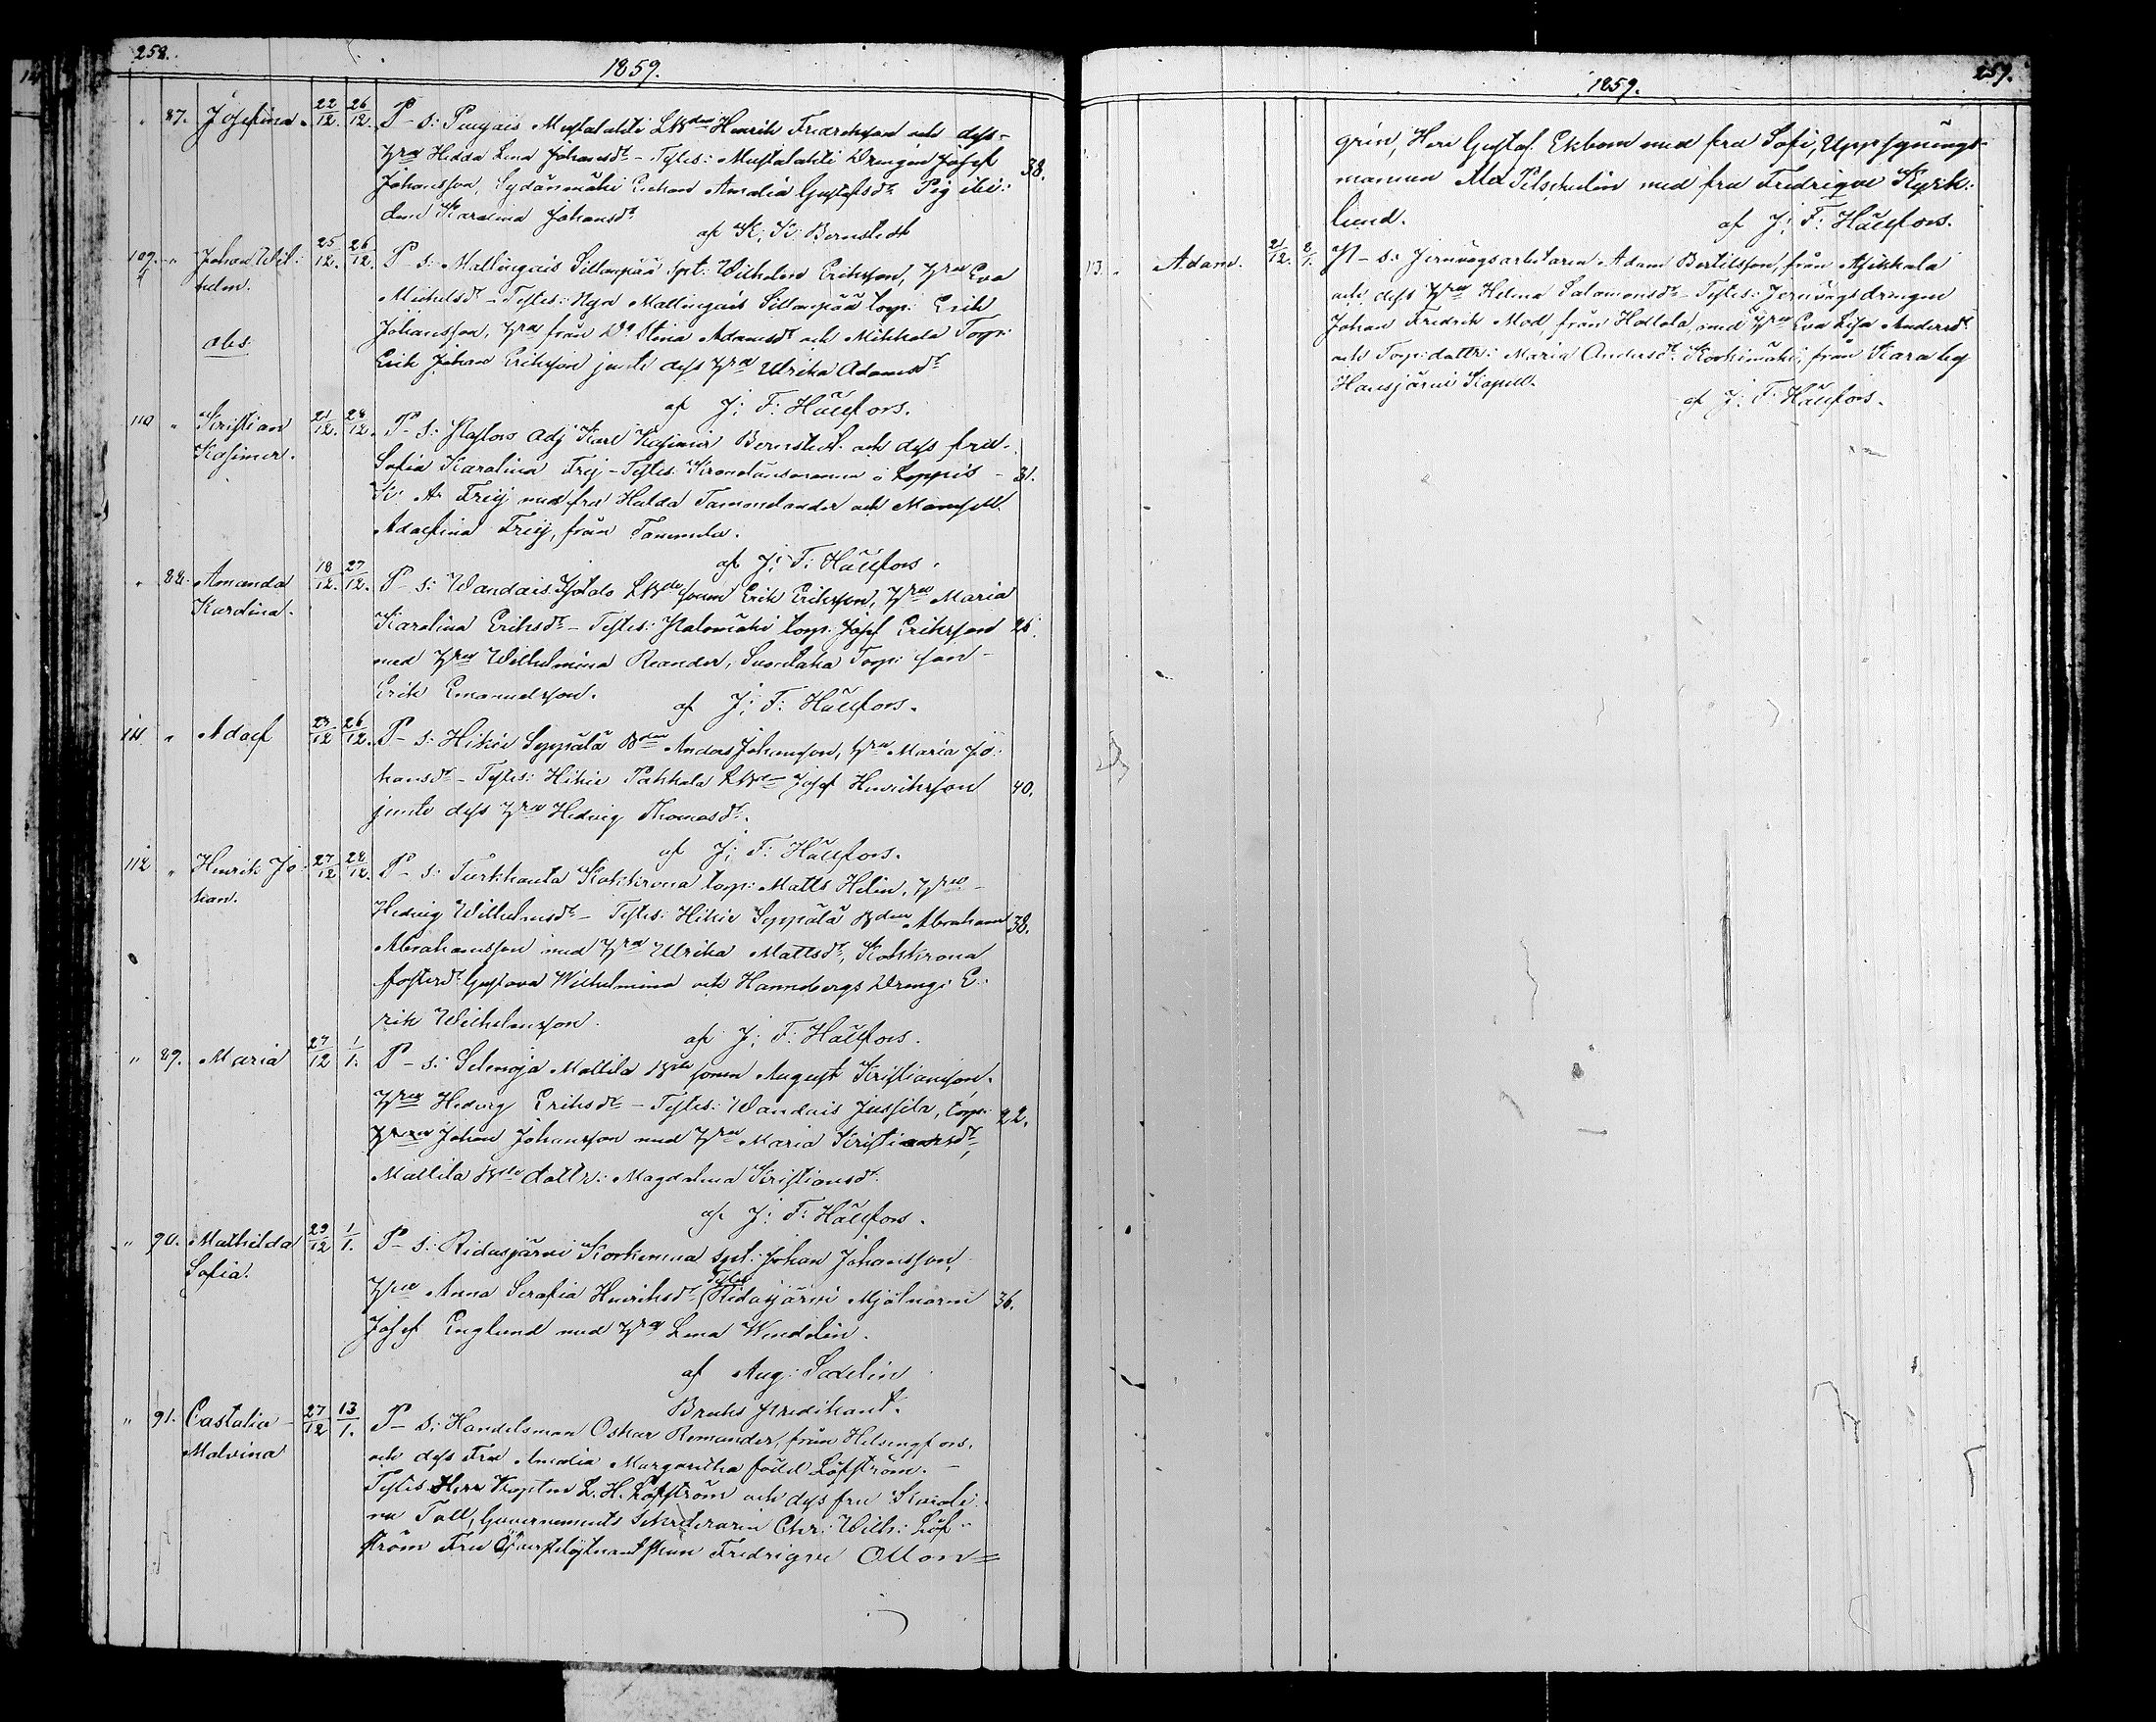 258.
1859.
87. Josefina. 22/12. 26/12. P-s: Pungais Mustalahti LBden Henrik Fredrikson och dess-
hru Hedda Lena Johansdr - Testes: Mustalahti Drengen Josef 38.
Johansson, Sydänmäki Enkan Amalia Gustafsdr Pig ibi-
dem Karolina Johansdr
af K: K: Bernstedt
109. " Johan Wil- 25/12. 26/12. P-s: Mallingais Sillanpää Spt: Wilhelm Erikson, hru Eva
helm. Michelsdr - Testes: Mallingais Sillanpää torp: Erik
Johansson, hru från Do Stina Adamsdr och Mikkola Torp:
obs: Erik Johan Erikson jemte dess hru Ulrika Adamsdr
af J: F: Hällfors.
110 " Kristian 21/12. 28/12. P-s: Pastors Adj Karl Kasimir Bernstedt och dess fru-
Kasimir. Sofia Karolina Frej - Testes: Kronolänsmannen i Loppis - 31.
K: A: Frey med fru Hulda Tamelander och Mamsell
Adolfina Frey, från Tammela.
af J: F: Hällfors.
" 88. Amanda 18/12. 27/12. P-s: Wandais LBde sonen Erik Erikson, hru Maria
Karolina. Karolina Eriksdr - Testes: Palomäki torp: Josef Erikson 26.
med hru Wilhelmina Reander, Torp: son-
Erik Emanuelson.
af J: F: Hällfors.
111. " Adolf 23/12 26/12. P-s: Hikiä Seppälä Bden Anders Johanson, hru Maria Jo-
hansdr - Testes: Hikiä Pakkala LBden Josef Henrikson 40.
jemte dess hru Hedvig Thomasdr.
af J: F: Hällfors.
112 " Henrik Jo- 27/12 28/12. P-s: Turkhauta Kokkrona torp: Matts Helin, hru-
han. Hedvig Wilhelmsdr - Testes: Hikiä Seppälä Bden Abraham 38.
Abrahamsson med hru Ulrika Mattsdr, Kokkrona
fosterdr Gustava Wilhelmina och Hannebergs Dreng: E-
rik Wilhelmson.
af J: F: Hällfors.
" 89. Maria 27/12 1/1. P-s: Selenoja Mattila Bde sonen August Kristianson.
hru Hedvig Eriksdr - Testes: Wandais Jussila, torp: 22.
Johan Johanson med hru Maria Kristiansdr,
Mattila Bde dottr: Magdalena Kristiansdr.
af J: F: Hällfors.
" 90. Mathilda 29/12 1/1. P-s: Ridasjärvi Korkeema Spt: Johan Johansson,
Sofia. hru Anna Serafia Henriksdr Testes Ridasjärvi Mjölnaren 36.
Josef Englund med hru Lena Wendelin.
af Aug: Sadelin
Bruks predikant.
" 91. Castalia 27/12 13/1. P-s: Handelsman Oskar Remander, från Helsingfors,
Malvina och dess Fru Amalia Margaretha född Löfström.-
Testes: Herr Kapten L. H. Löfström och dess fru Karoli-
na Toll, Guvernements Sekreteraren Chr: Wilh: Löf-
ström Fru Fredrique Ollon=
259.
1859.
grén, Herr Gustaf Ekbom med fru Sofi, Uppsynings-
mannen Md med fru Fredrique Kyrk-
lund.
af J: F: Hällfors.
113. " Adam. 21/12. 2/1. P-s: Jernvägsarbetaren Adam Bertilsson, från Asikkala
och dess hru Helena Salomonsdr - Testes: Jernvägsdrengen
Johan Fredrik Mod, från Hollola, med hru Eva Lisa Andersdr.
och Torp: dottr: Maria Andersdr. Korkimäki, från Kara by
Hausjärvi Kapell.
af J: F: Hällfors.